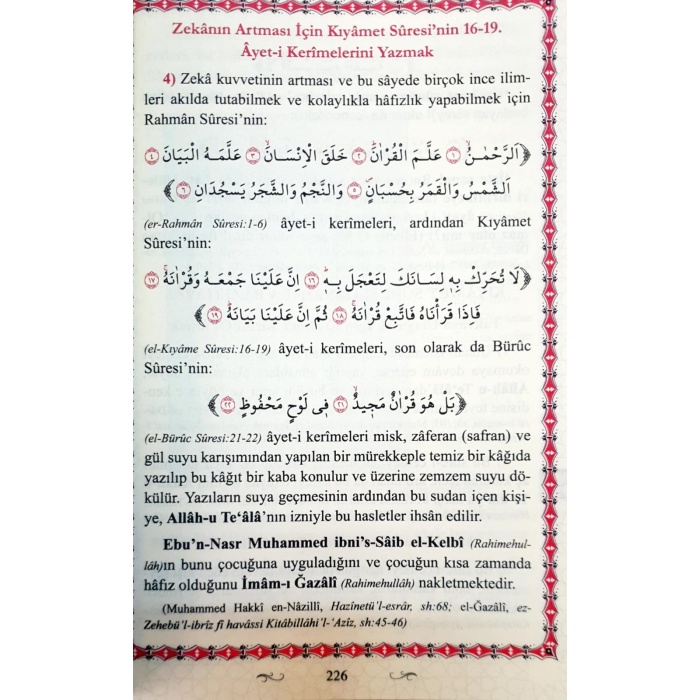 Zekânın Artması İçin Kıyâmet Sûresi'nin 16-19.
Âyet-i Kerîmelerini Yazmak
4) Zekâ kuvvetinin artması ve bu sâyede birçok ince ilim-
leri akılda tutabilmek ve kolaylıkla hâfızlık yapabilmek için
Rahmân Sûresi'nin:
﴿اَلرَّحْمٰنُۙ ﴿١﴾ عَلَّمَ الْقُرْاٰنَۜ ﴿٢﴾ خَلَقَ الْاِنْسَانَۙ ﴿٣﴾ عَلَّمَهُ الْبَيَانَ ﴿٤﴾
اَلشَّمْسُ وَالْقَمَرُ بِحُسْبَانٍۖ ﴿٥﴾ وَالنَّجْمُ وَالشَّجَرُ يَسْجُدَانِ ﴿٦﴾﴾
(er-Rahmân Sûresi:1-6) âyet-i kerîmeleri, ardından Kıyâmet
Sûresi'nin:
﴿لَا تُحَرِّكْ بِهٖ لِسَانَكَ لِتَعْجَلَ بِهٖۜ ﴿١٦﴾ اِنَّ عَلَيْنَا جَمْعَهُ وَقُرْاٰنَهُۚ ﴿١٧﴾
فَاِذَا قَرَأْنَاهُ فَاتَّبِعْ قُرْاٰنَهُۚ ﴿١٨﴾ ثُمَّ اِنَّ عَلَيْنَا بَيَانَهُۜ ﴿١٩﴾﴾
(el-Kıyâme Sûresi:16-19) âyet-i kerîmeleri, son olarak da Bürûc
Sûresi'nin:
﴿بَلْ هُوَ قُرْاٰنٌ مَجٖيدٌۙ ﴿٢١﴾ فٖي لَوْحٍ مَحْفُوظٍ ﴿٢٢﴾﴾
(el-Bürûc Sûresi:21-22) âyet-i kerîmeleri misk, zâferan (safran) ve
gül suyu karışımından yapılan bir mürekkeple temiz bir kâğıda
yazılıp bu kâğıt bir kaba konulur ve üzerine zemzem suyu dö-
külür. Yazıların suya geçmesinin ardından bu sudan içen kişi-
ye, Allâh-u Te‘âlâ'nın izniyle bu hasletler ihsân edilir.
Ebu'n-Nasr Muhammed ibni's-Sâib el-Kelbî (Rahimehul-
lâh)ın bunu çocuğuna uyguladığını ve çocuğun kısa zamanda
hâfız olduğunu İmâm-ı Ğazâlî (Rahimehullâh) nakletmektedir.
(Muhammed Hakkî en-Nâzillî, Hazînetü'l-esrâr, sh:68; el-Ğazâlî, ez-
Zehebü'l-ibrîz fî havâssi Kitâbillâhi'l-‘Azîz, sh:45-46)
226